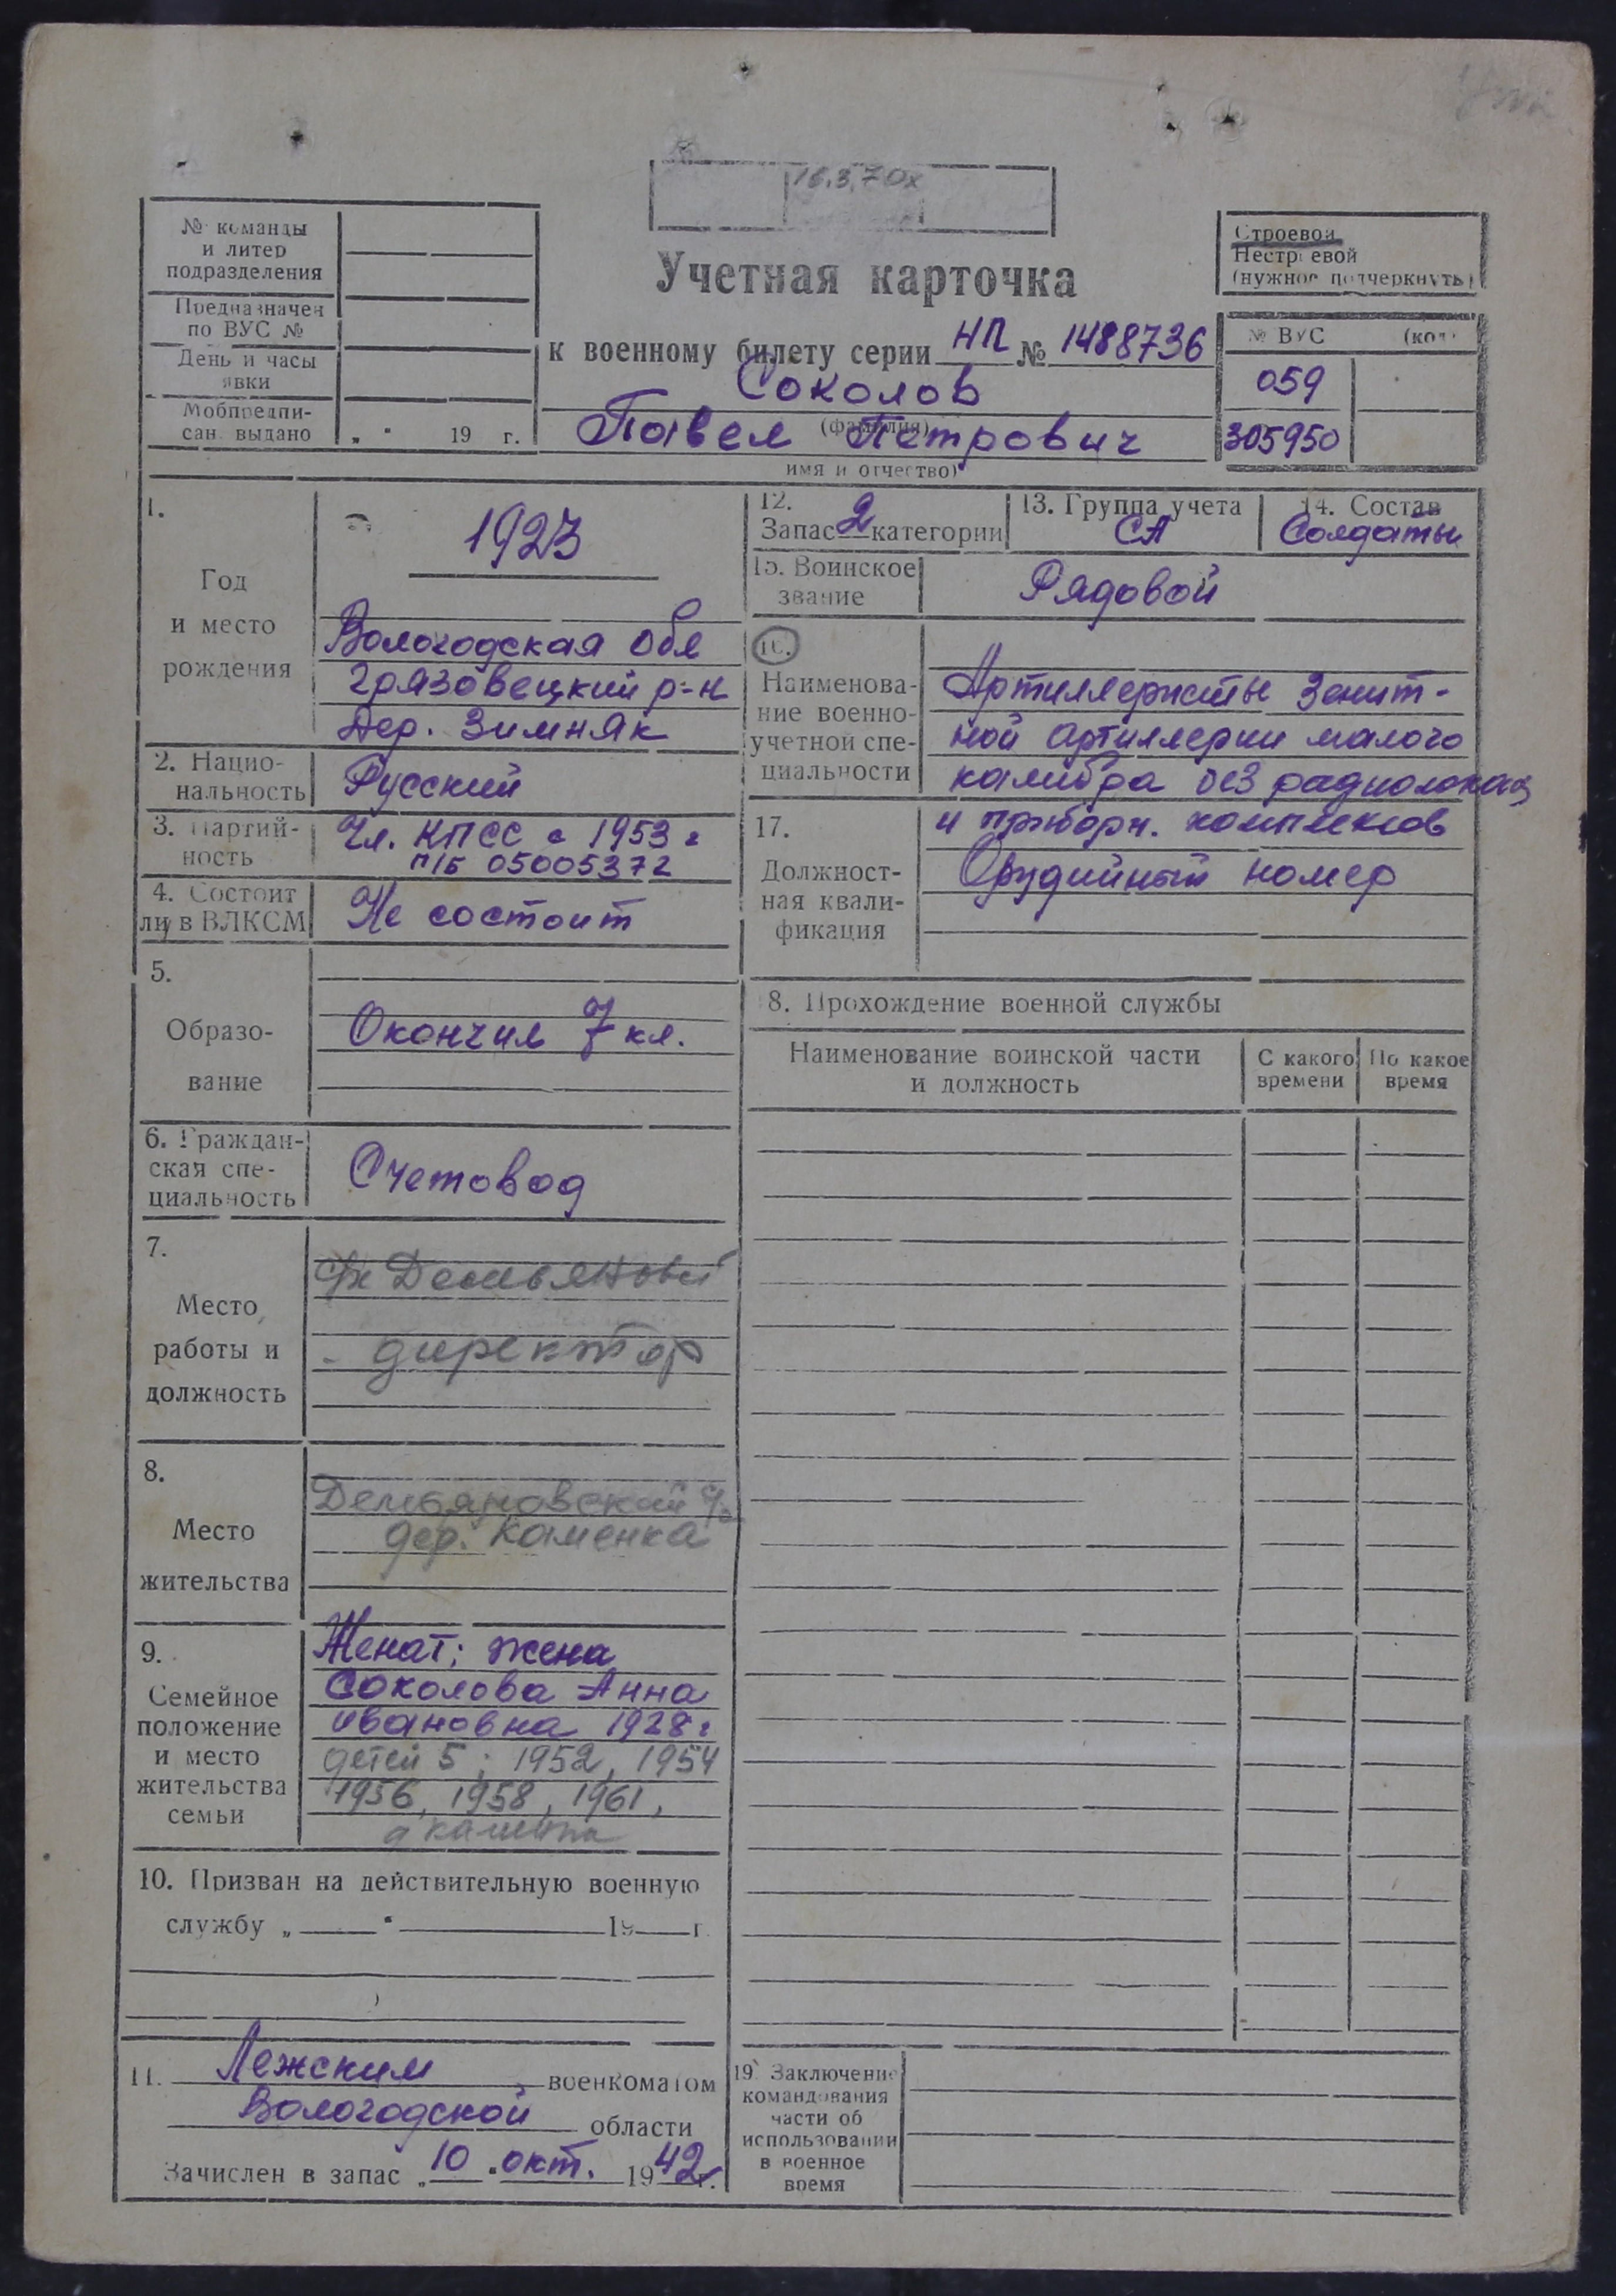 16.3.70х
№ команды
и литер
подразделения
Предназначен
по ВУС №
День и часы
явки
Мобпредпи-
сан. выдано „ “ 19 г.
Учетная карточка
к военному билету серии НП № 1488736
Соколов
(фамилия)
Павел Петрович
имя и отчество)
Строевой
Нестроевой
(нужное подчеркнуть)
№ ВУС (код
059
305950
1.
Год
и место
рождения
1923
Вологодская обл
Грязовецкий р-н
дер. Зимняк
2. Нацио-
нальность
Русский
3. Партий-
ность
Чл. КПСС с 1953 г
п/б 05005372
4. Состоит
ли в ВЛКСМ
Не состоит
5.
Образо-
вание
Окончил 7 кл.
6. Граждан-
ская спе-
циальность
Счетовод
7.
Место
работы и
должность
Демьяновский
- директор
8.
Место
жительства
Демьяновский
дер. Каменка
9.
Семейное
положение
и место
жительства
семьи
Женат; жена
Соколова Анна
Ивановна 1928 г
детей 5; 1952, 1954
1956, 1958, 1961,
10. Призван на действительную военную
службу „ “ 19 г.
11. Лежским военкоматом
Вологодской области
Зачислен в запас „10“ окт. 1942 г.
12.
Запас 2 категории
13. Группа учета
СА
14. Состав
Солдаты
15. Воинское
звание
Рядовой
16.
Наименова-
ние военно-
учетной спе-
циальности
Артиллеристы зенит-
ной артиллерии малого
калибра без радиолокац
и приборн. комплексов
17.
Должност-
ная квали-
фикация
Орудийный номер
8. Прохождение военной службы
Наименование воинской части
и должность
С какого
времени
По какое
время
19. Заключение
командования
части об
использовании
в военное
время